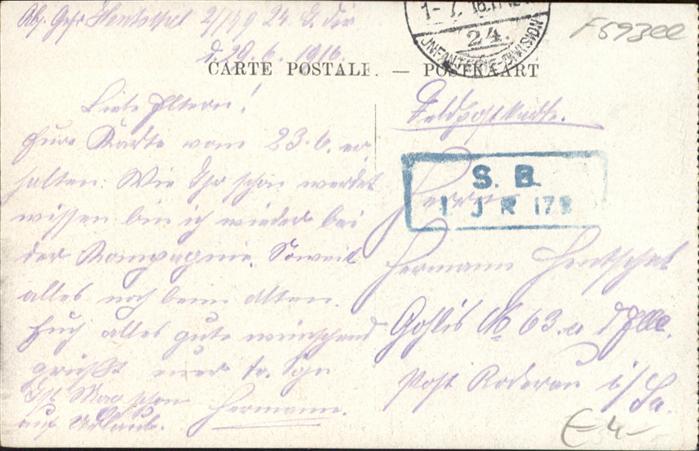 Abs. Gefr. Hentschel 2/179 24. I. Div.
d. 30.6.1916
CARTE POSTALE. — POSTKAART
1-7.16.
24.
INFANTERIE-DIVISION
F5930e
Liebe Eltern!
Eure Karte vom 23.6. er
halten. Wie Ihr schon werdet
wissen bin ich wieder bei
der Kompagnie. Soweit
alles noch beim alten.
Euch alles gute wünschend
grüßt euer tr. Sohn
Ist Max schon Hermann.
auf Urlaub.
Feldpostkarte.
S. B.
I J R 179
Herrn
Hermann Hentschel
Gohlis No 63. a d Elbe.
Post Röderau i/Sa.
€ 4-